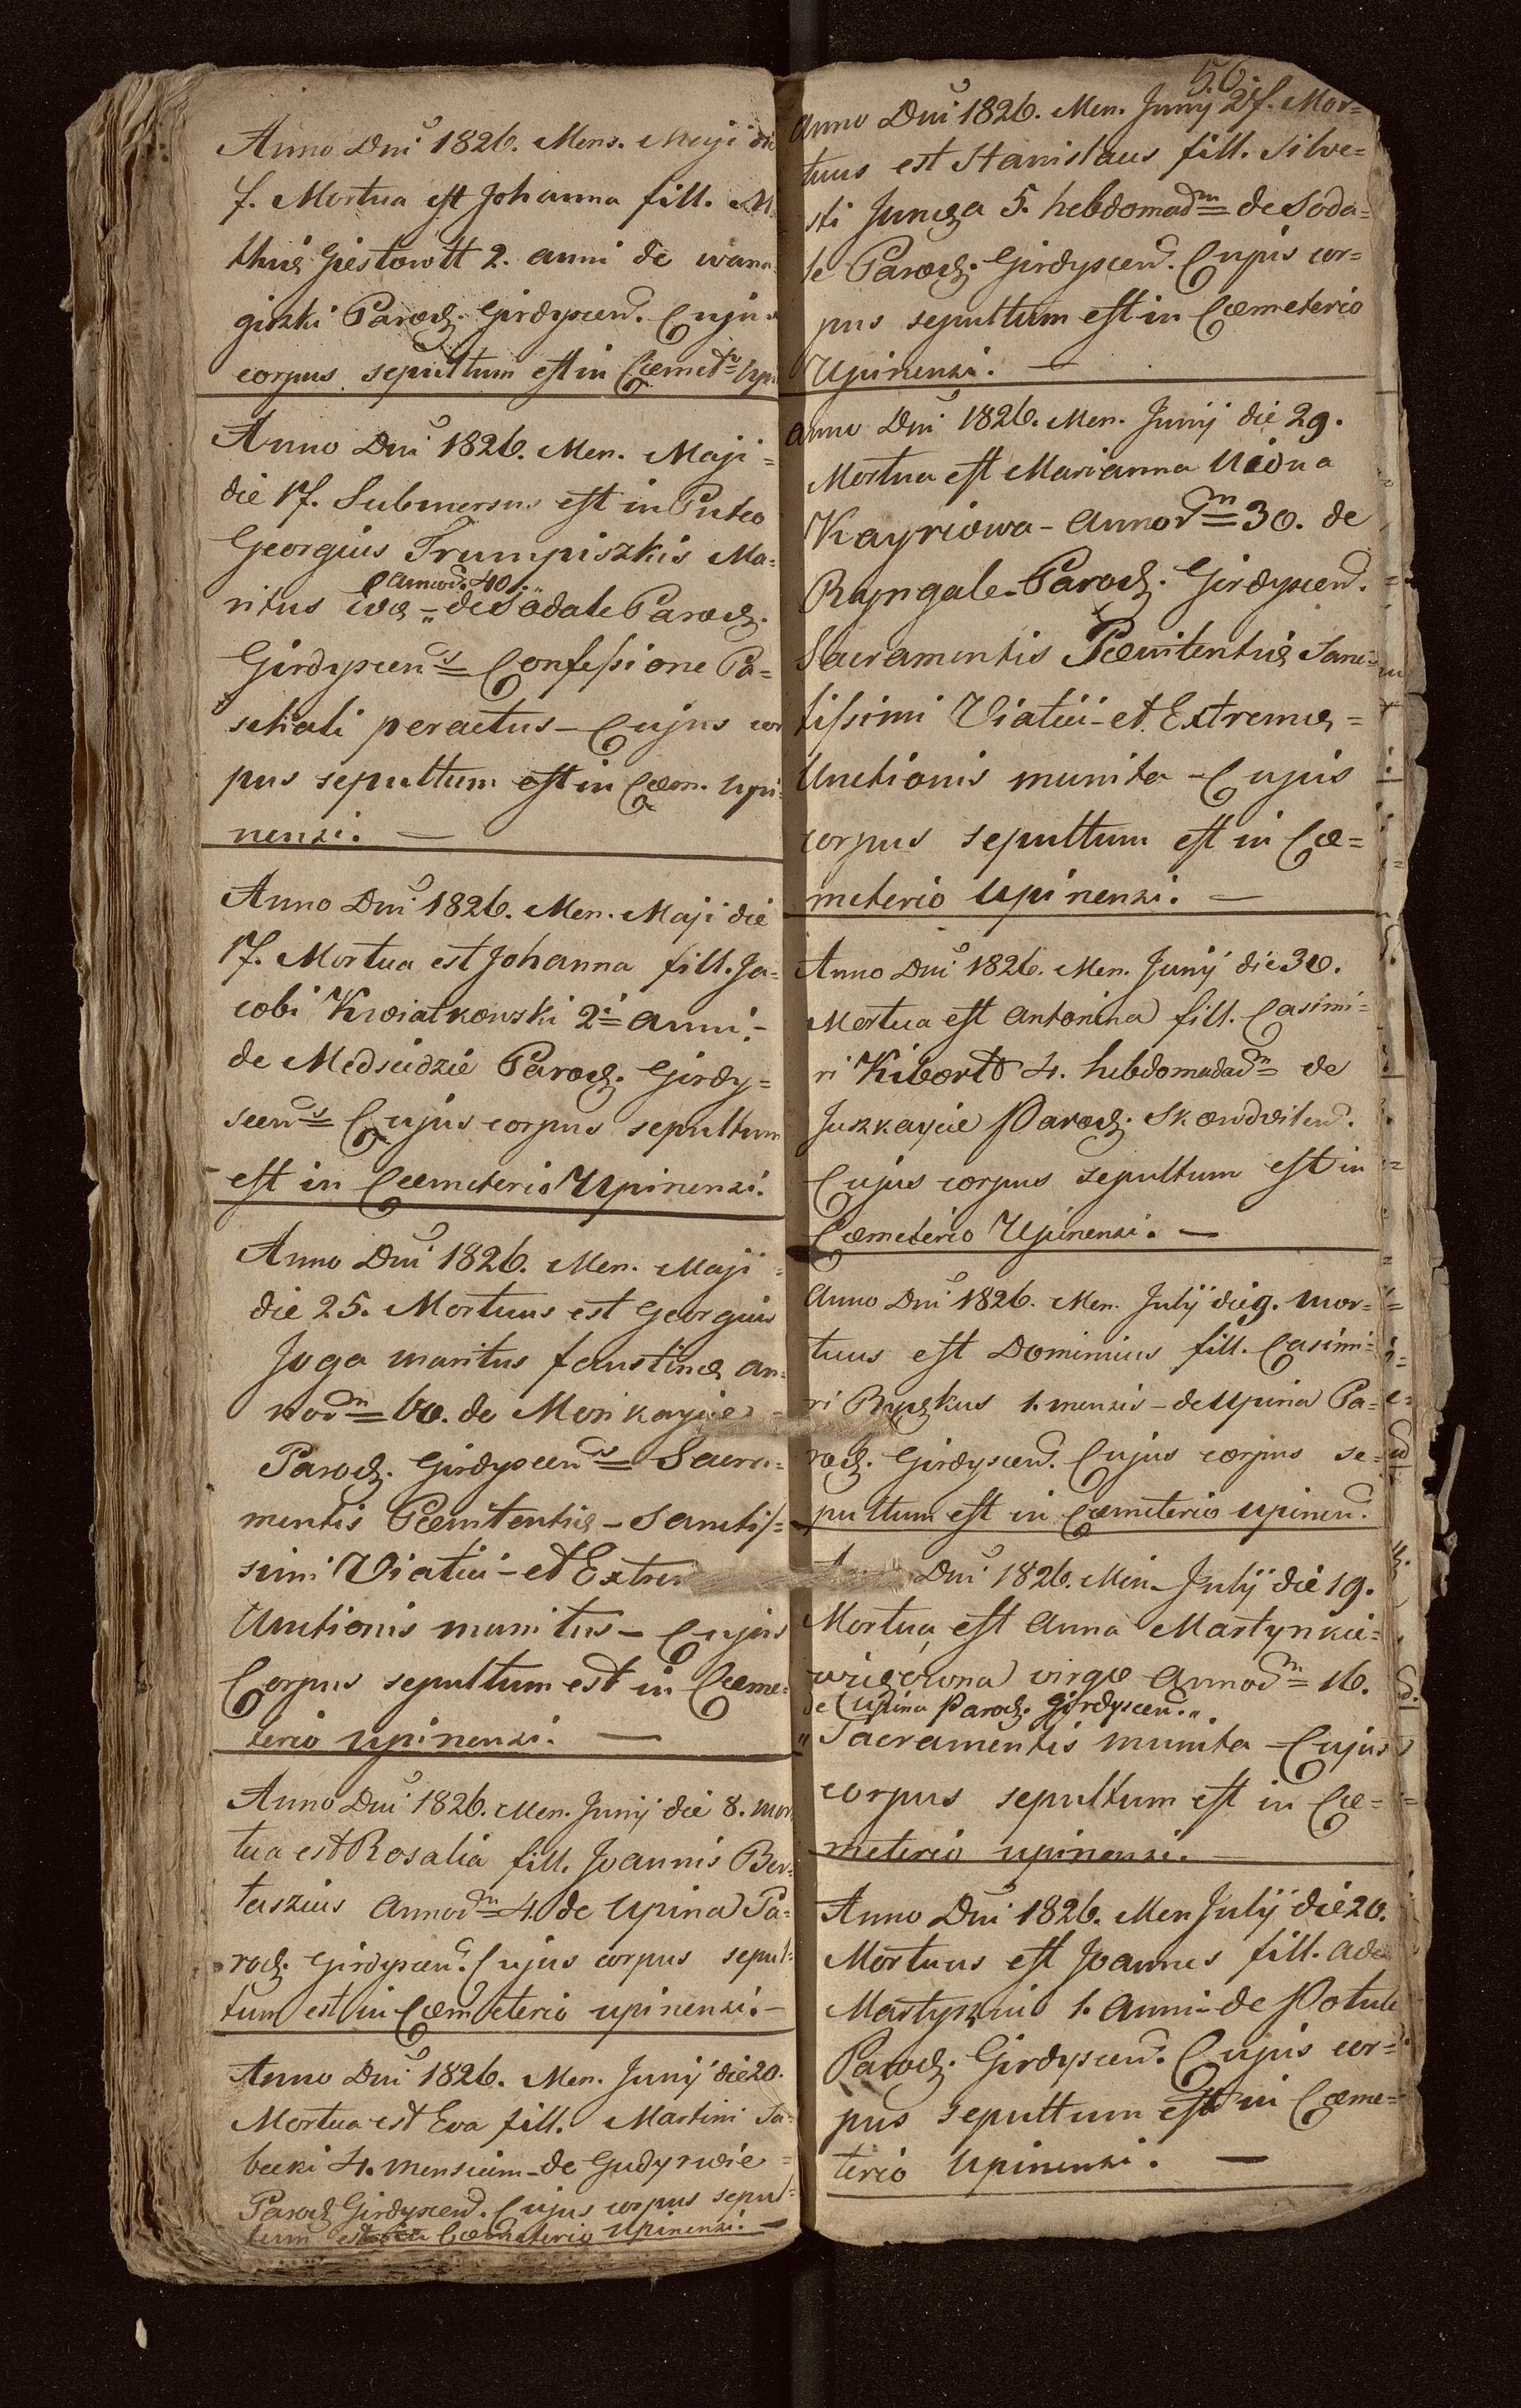 Anno Dni 1826. Mens. Maji die
7. Mortua est Johanna fill. Ma
thiæ Giestowtt 2. anni de wana
giszki Paroch. Girdyscen. Cujus
corpus sepultum est in Cœmet Upi
Anno Dni 1826. Men. Maji =
die 17. Submersus est in Puteo
Georgius Trumpiszkis Ma=
Annor. 40.
ritus Evæ - de Sodale Paroch.
Girdyscens Confessione Pa=
schali peractus - Cujus cor
pus sepultum est in Cœm. Upi=
nensi. —
Anno Dni 1826. Men. Maji die
17. Mortua est Johanna fill. Ja=
cobi Kwiatkowski 2i anni -
de Medscidzie Paroch. Girdy=
scens Cujus corpus sepultum
est in Cœmeterio Upinensi.
Anno Dni 1826. Men. Maji
die 25. Mortuus est Georgius
Juga maritus faustinæ an=
norm 60. de Monkaycie
Paroch. Girdyscens Sacra=
mentis Pœnitentiæ - Sanctis=
simi Viatici - et Extre
Unctionis munitus - Cujus
Corpus sepultum est in Cœme=
terio Upinensi. —
Anno Dni 1826. Men. Junij die 8. Mor
tua est Rosalia fill. Joannis Ber=
taszius Annorm 4. de Upina Pa=
roch. Girdyscen. Cujus corpus sepul=
tum est in Cœmeterio upinensi. —
Anno Dni 1826. Men. Junij die 20.
Mortua est Eva fill. Martini Sa=
becki 4. mensium - de Gudyrwie =
Paroch Girdyscen. Cujus corpus sepul=
tum est in Cœmeterio Upinensi. —
56.
Anno Dni 1826. Men. Junij 27. Mor=
tuus est Stanislaus fill. Silve=
sti Juncza 5. hebdomadm de Soda=
le Paroch. Girdyscen. Cujus cor=
pus sepultum est in Cœmeterio
Upinensi. —
Anno Dni 1826. Men. Junij die 29.
Mortua est Marianna Vidua
Kayriowa - Annorm 30. de
Ryngale - Paroch. Girdyscen.
Sacramentis Pœnitentiæ Sanc=
tissimi Viatici - et Extremæ =
Unctionis munita - Cujus
corpus sepultum est in Cœ=
meterio Upinensi. —
Anno Dni 1826. Men. Junij die 30.
Mortua est Antonina fill. Casimi=
ri Kibort 4. hebdomadam de
Juszkaycie Paroch. Skaudvilen.
Cujus corpus sepultum est in
Cœmeterio Upinensi. —
Anno Dni 1826. Men. Julij die 9. Mor=
tuus est Dominicus fill. Casimi=
ri Ryczkus 1. mensis - de Upina Pa=
roch. Girdyscen. Cujus corpus se=
pultum est in Cœmeterio Upinen.
Dni 1826. Men. Julij die 19.
Mortua est Anna Martynkie=
wiczowna virgo Annorm 16.
de Upina Paroch. Girdyscen.
Sacramentis munita - Cujus
corpus sepultum est in Cœ=
meterio upinensi. —
Anno Dni 1826. Men Julij die 20.
Mortuus est Joannes fill. Ada
Martyszius 1. Anni - de Potule
Paroch. Girdyscen. Cujus cor=
pus sepultum est in Cœme=
terio Upinensi. —